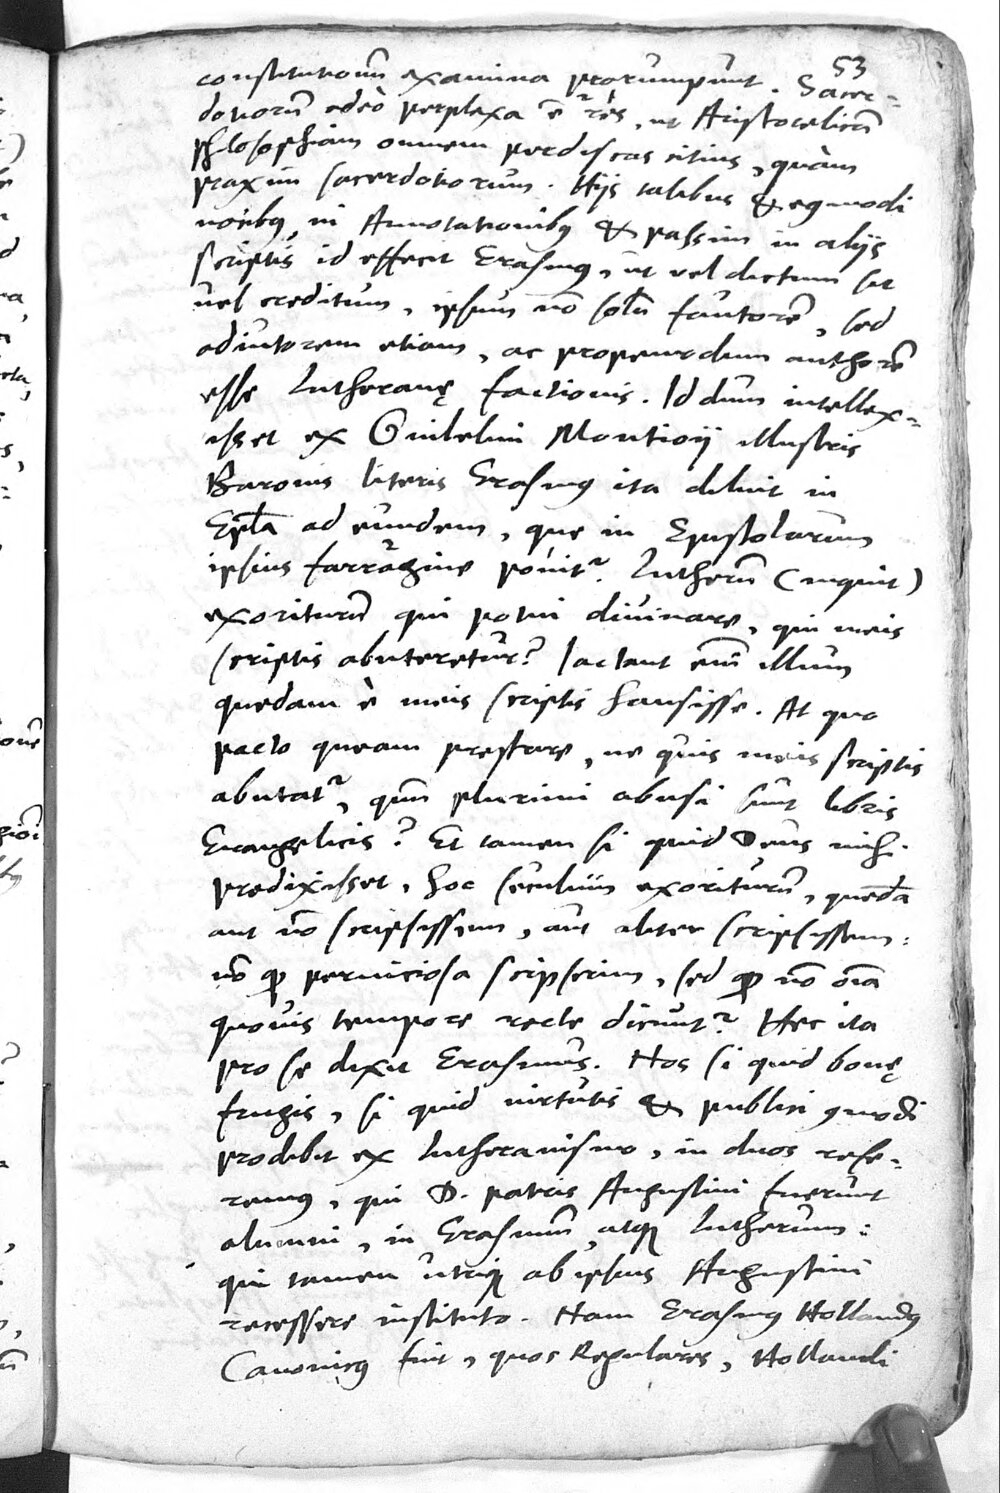 53
constitutionũ examina prorumpunt. Sacer=
dotiorũ adeò perplexa ẽ res, ut Aristotelicã
philosophiam omnem perdiscas citius, quàm
praxim sacerdotiorum. Hijs talibus & eiusmodi
in Annotationibus & passim in alijs
scriptis id effecit Erasmus, ut vel dictum sit
vel creditum, ipsum nõ solũ fautorẽ, sed
adiutorem etiam, ac propemodum authorẽ
esse Lutheranę factionis. Id dum intellex=
isset ex Guilelmi Montioij illustris
Baronis literis Erasmus ita diluit in
Epla ad eundem, que in Epistolarum
ipsius farragine ponitr. Lutherũ (inquit)
exoriturũ qui potui divinare, qui meis
scriptis abuteretur? Iactant em̃ illum
quedam è meis scriptis hausisse. At quo
pacto queam prestare, ne quis meis scriptis
abutatr, qum̃ plurimi abusi sunt libris
Euangelicis? Et tamen si quid Deus mihi
predixisset, hoc seculum exoriturũ, quedã
aut nõ scripsissem, aut aliter scripsissem:
nõ qp perniciosa scripserim, sed qp nõ oĩa
quovis tempore recte dicuntr. Hec ita
pro se dixit Erasmus. Nos si quid bonę
frugis, si quid virtutis & publici cõmodi
prodibit ex Lutheranismo, in duos refe=
remus, qui D. patris Augustini fuerunt
alumni, in Erasmum atque Lutherum:
qui tamen utrique ab ipsius Augustini
recessere instituto. Nam Erasmus Hollandus
Canonicus fuit, quos Regulares, Hollandi